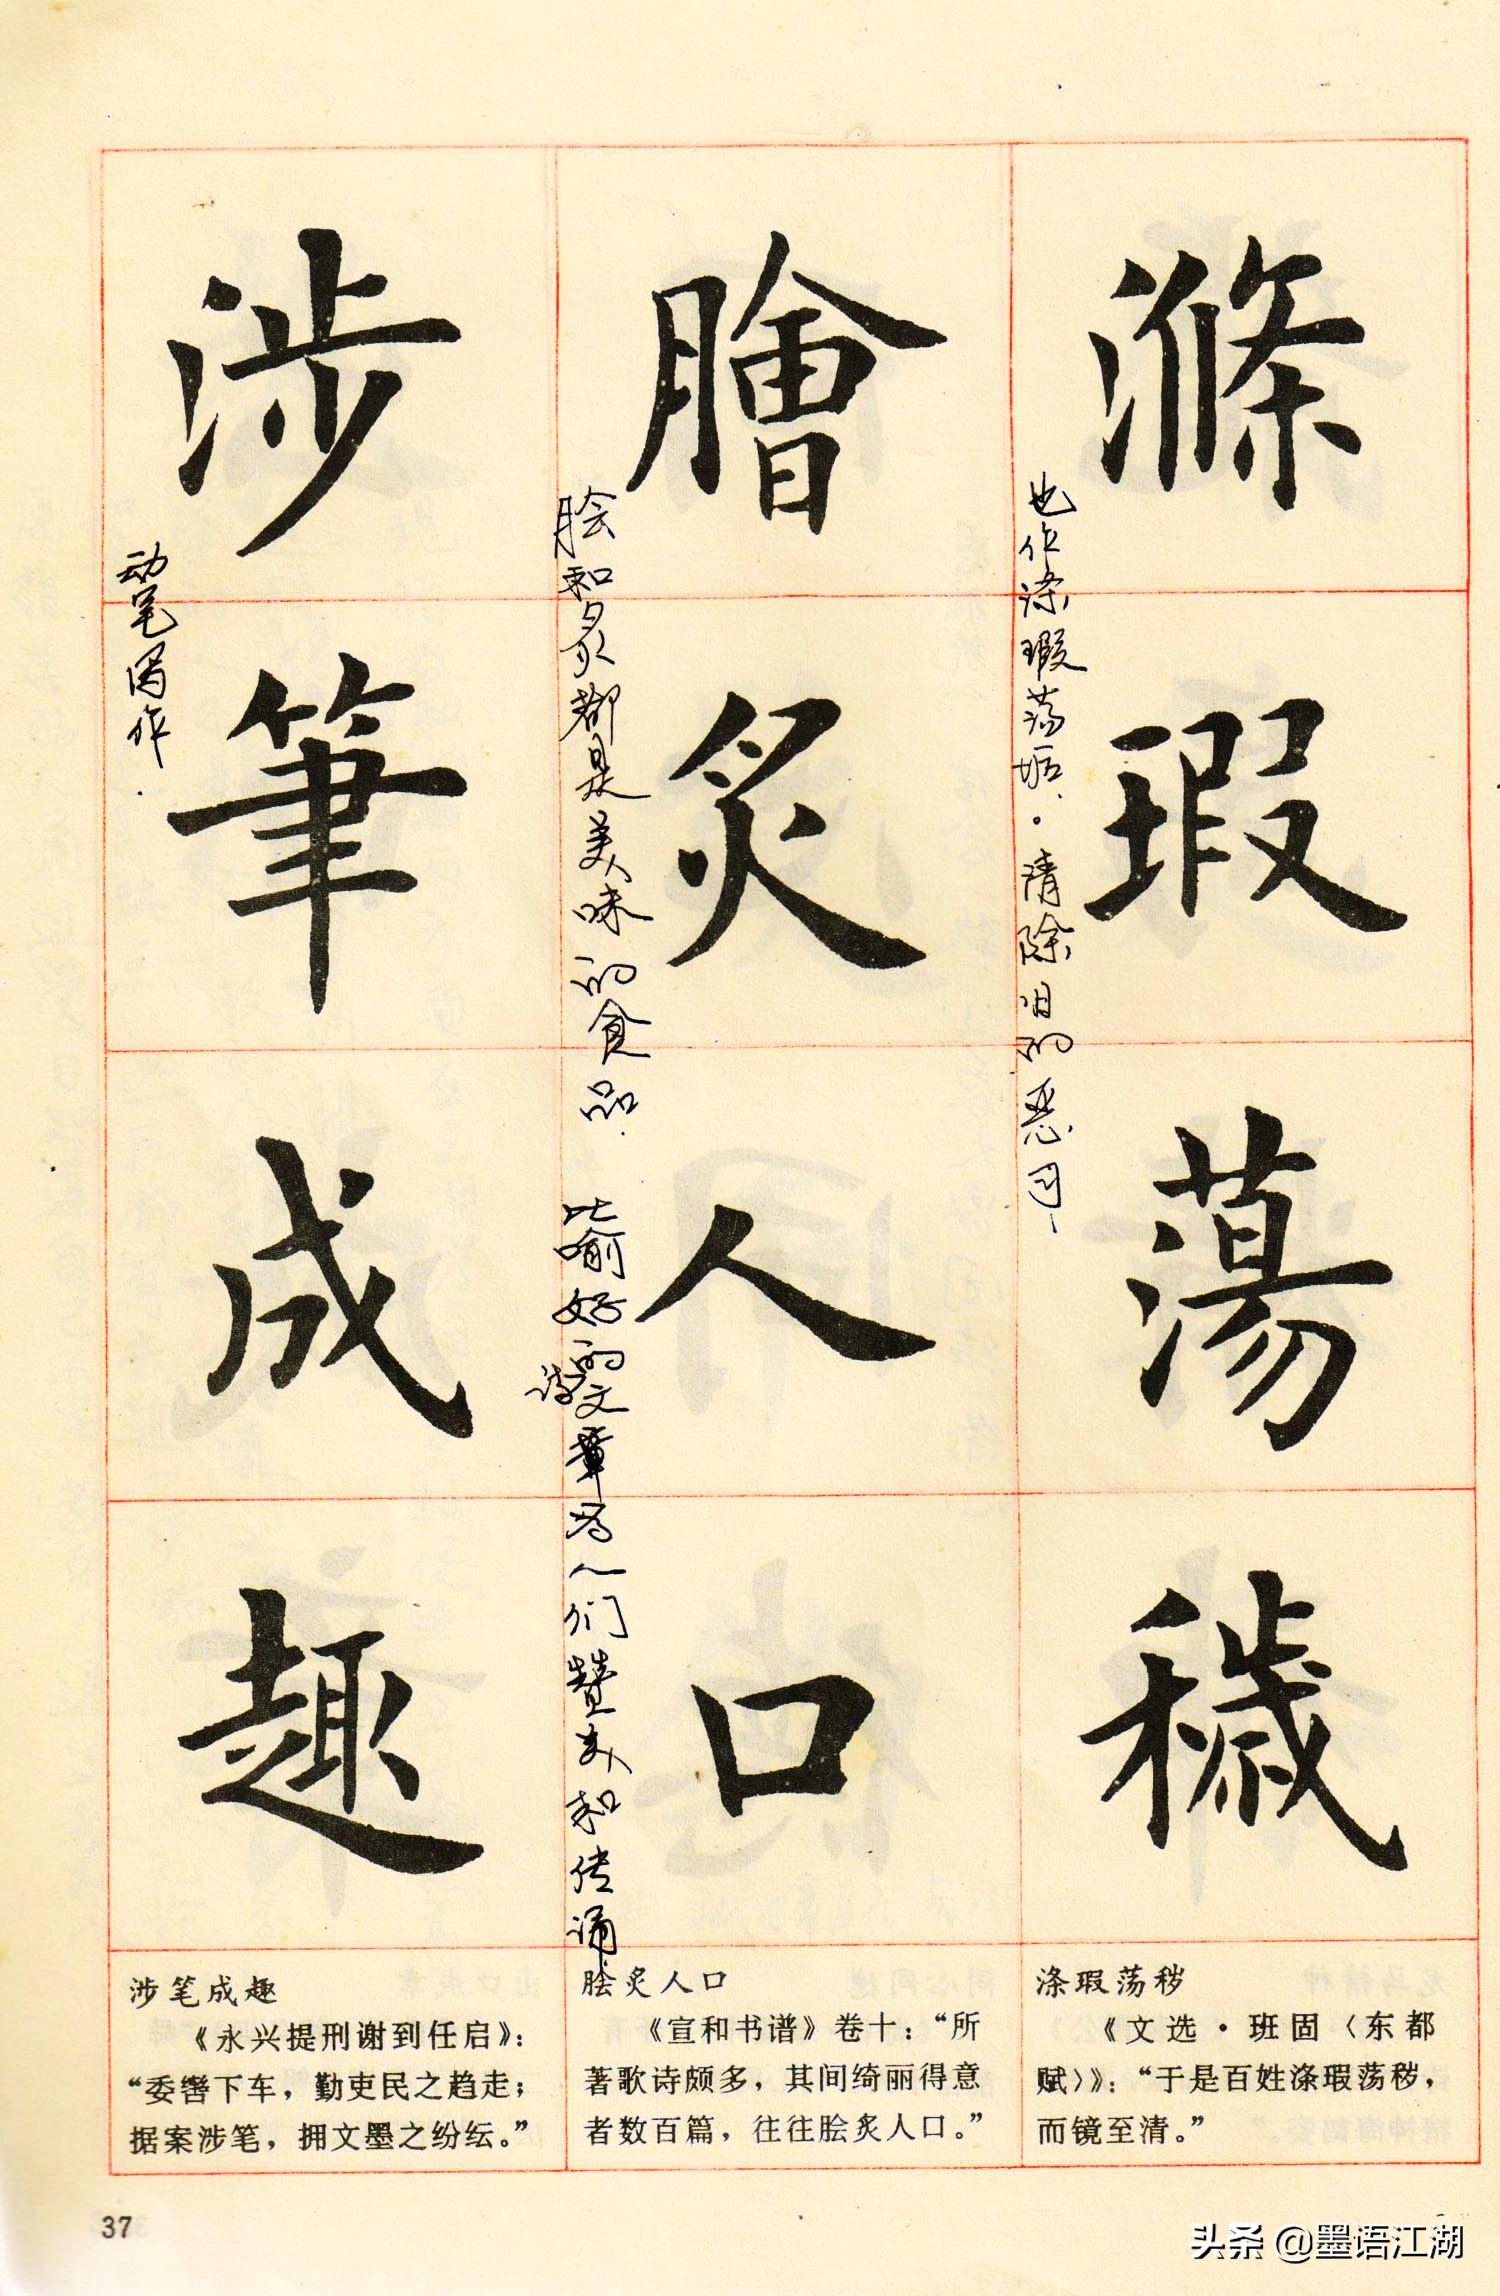 滌瑕蕩穢
膾炙人口
涉筆成趣
也作涤瑕荡垢·清除旧的恶习
脍和炙都是美味的食品
比喻好的诗文章为人们赞美和传诵
动笔写作.
涤瑕荡秽
《文选·班固〈东都
赋〉》：“于是百姓涤瑕荡秽，
而镜至清。”
脍炙人口
《宣和书谱》卷十：“所
著歌诗颇多，其间绮丽得意
者数百篇，往往脍炙人口。”
涉笔成趣
《永兴提刑谢到任启》：
“委辔下车，勤吏民之趋走；
据案涉笔，拥文墨之纷纭。”
37
头条 @墨语江湖